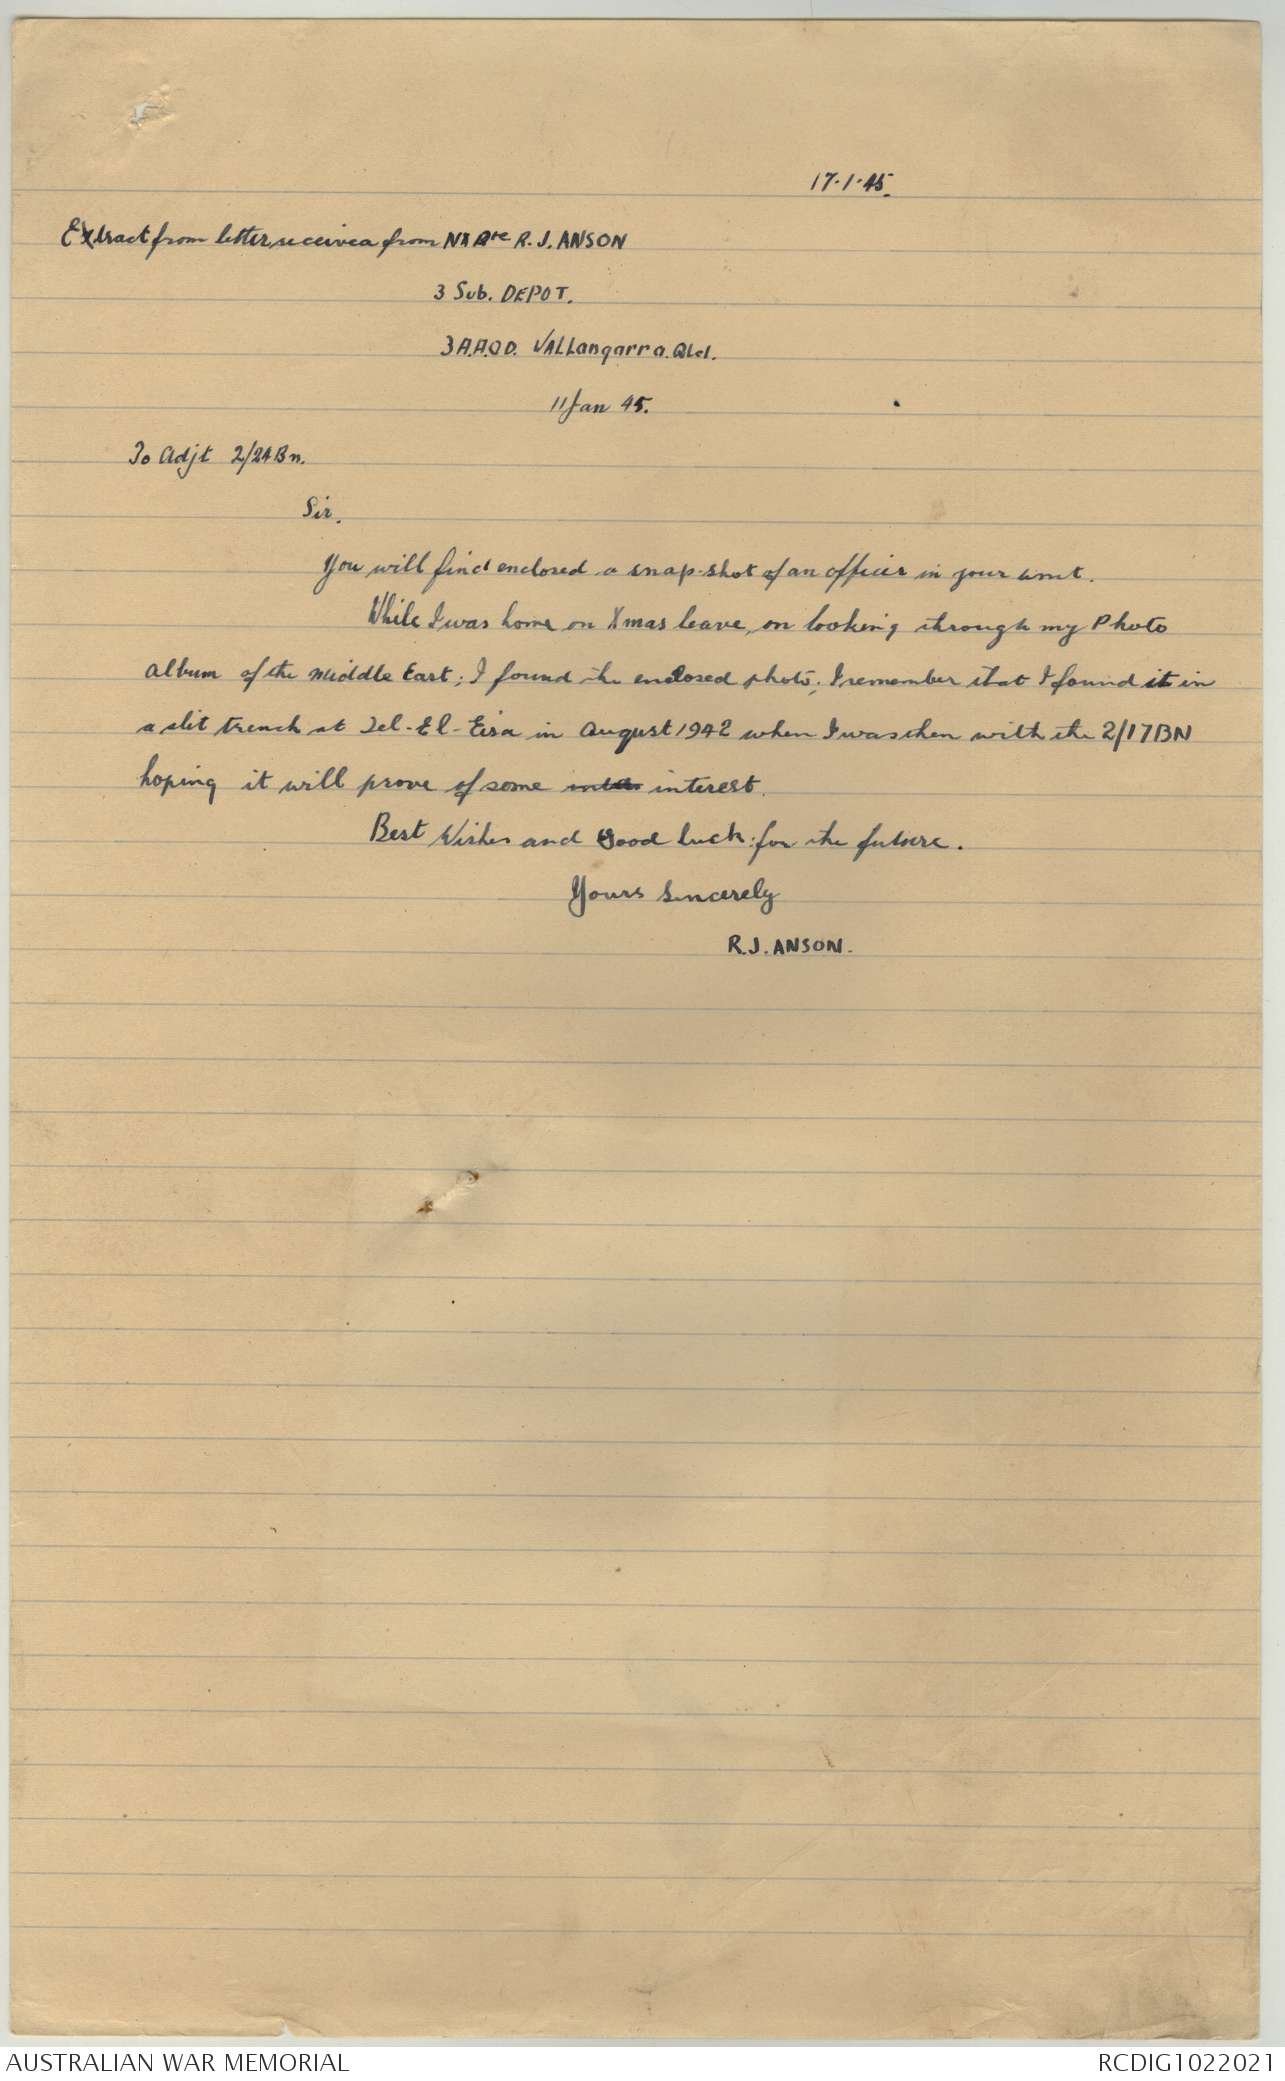 17.1.45.
Extract from letter received from NX Pte R. J. ANSON
3 Sub. DEPOT.
3 A.A.O.D. WALLangarra. Qld.
11 Jan 45.
To Adjt 2/24 Bn.
Sir.
You will find enclosed a snap-shot of an officer in your unit.
While I was home on Xmas leave, on looking through my Photo
album of the Middle East; I found the enclosed photo; I remember that I found it in
a slit trench at Tel-El-Eisa in August 1942 when I was then with the 2/17 BN
hoping it will prove of some interest.
Best Wishes and Good luck for the future.
Yours Sincerely
R.J. ANSON.
AUSTRALIAN WAR MEMORIAL
RCDIG1022021